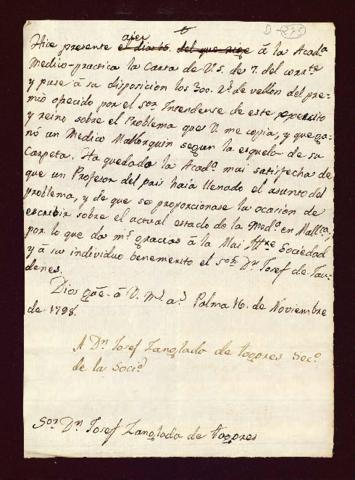 D-275
ayer
Hice presente el dia 15. del que rige á la Acad.ª
Medico-practica la Carta de V.S. de 7. del corr.te
y puse á su disposicion los 300. r.s de vellon del pre-
mio ofrecido por el S.or Intendente de este exercito
y reino sobre el Problema que V. me copia, y que ga-
nó un Medico Mallorquin segun la esquela de su
Carpeta. Ha quedado la Acad.ª mui satisfecha de
que un Profesor del pais haia llenado el asunto del
problema, y de que se proporcionase la ocasion de
escribir sobre el actual estado de la Med.ª en Mall.ca,
por lo que da m.s gracias á la Mui Ill.tre Sociedad
y á su individuo benemerito el S.or D.n Josef de Jau-
denes.
Dios gue. á V. m.s a.s Palma 16. de Noviembre
de 1798.
A D.n Josef Zanglada de Togores Sec.º
de la Soci.d
S.or D.n Josef Zanglada de Togores